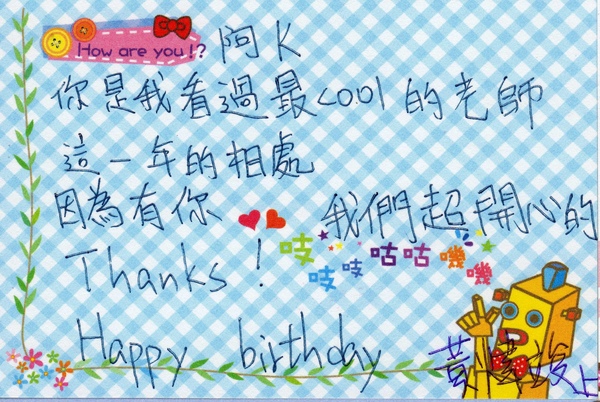 How are you!?
阿K
你是我看過最cool的老師
這一年的相處
因為有你 我們超開心的
吱吱吱咕咕嘰嘰
Thanks!
Happy birthday
黃 上